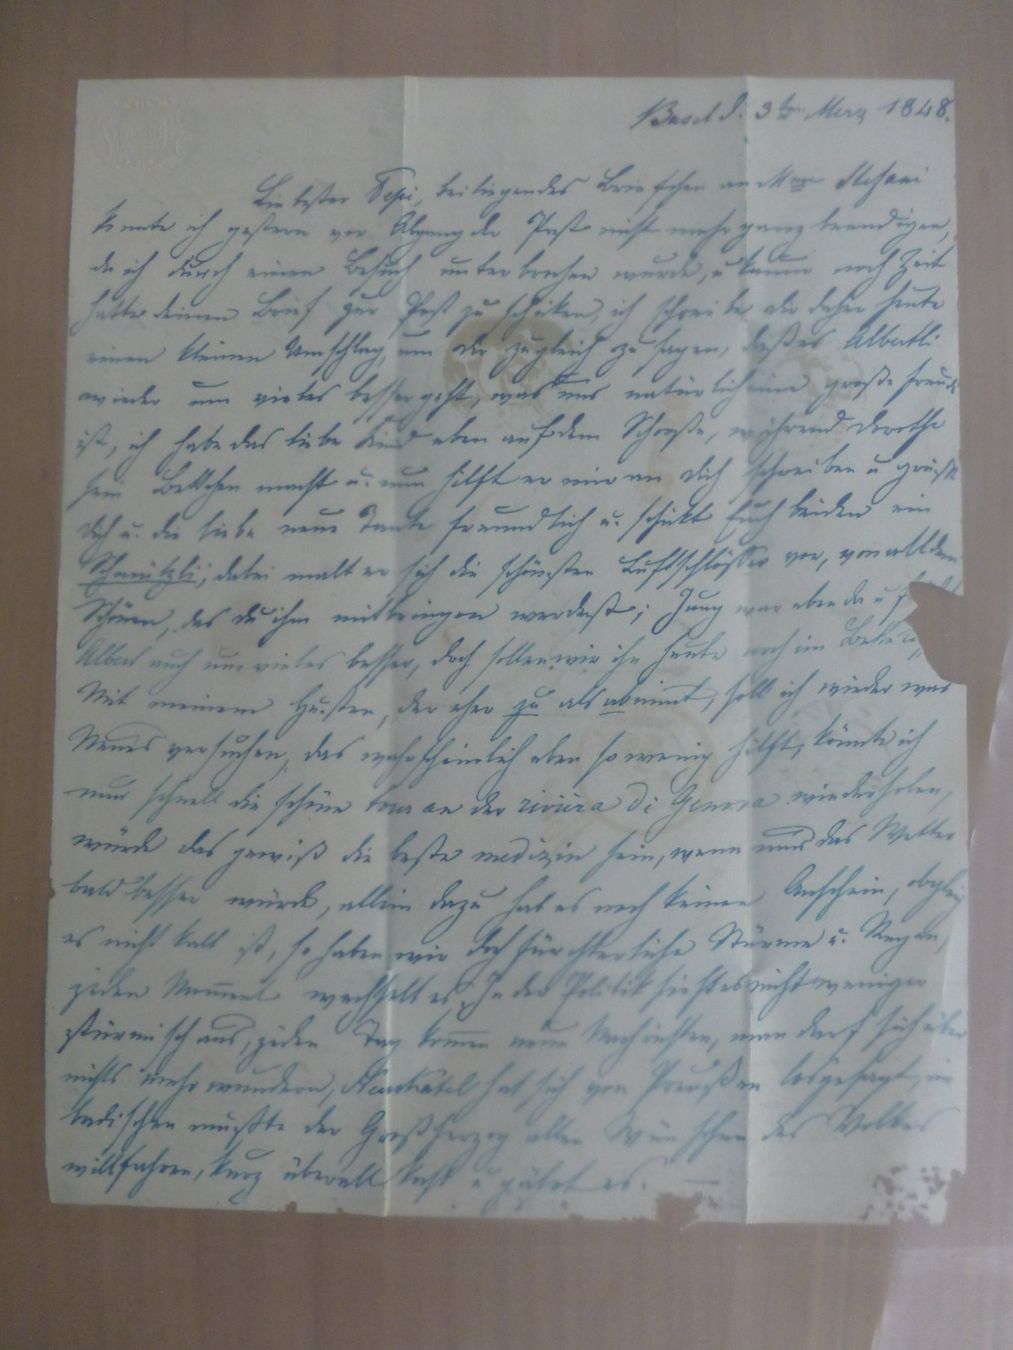 Basel d. 3ten Merz 1848.
Liebster Pepi, beiliegendes Briefchen an Mme Stefani
konnte ich gestern vor Abgang der Post nicht mehr ganz beendigen,
da ich durch einen Besuch unterbrochen wurde, u kaum noch Zeit
hatte deinen Brief zur Post zu schicken, ich schreibe dir daher heute
einen kleinen Umschlag, um dir zugleich zu sagen, daß es Albertli
wieder um vieles besser geht, was uns natürlich eine große Freude
ist, ich habe das liebe Kind eben auf dem Schooße, während Dorothe
sein Bettchen macht u. nun hilft er mir an dich schreiben u grüßt
dich u. die liebe neue Tante freundlich u. schickt Euch beiden ein
Schmützli, dabei malt er sich die schönsten Luftschlösser vor, von all dem
Schönen, das du ihm mitbringen werdest; Jung war eben da u
Albert auch um vieles besser, doch sollen wir ihn heute noch im Bett
Mit meinem Husten, der eher zu als abnimmt, soll ich wieder was
Neues versuchen, das wahrscheinlich eben so wenig hilft, könnte ich
nur schnell die schöne tour an der riviera di Genova wiederholen,
würde das gewiß die beste medizin sein, wenn nur das Wetter
bald besser würde, allein dazu hat es noch keinen Anschein, obgleich
es nicht kalt ist, so haben wir doch fürchterliche Stürme u. Regen,
jeden Moment wechselt es. In der Politik sieht es nicht weniger
stürmisch aus, jeden Tag kommen neue Nachrichten, man darf sich über
nichts mehr wundern, Neuchatel hat sich von Preußen losgesagt, im
badischen mußte der Großherzog allen Wünschen des Volkes
willfahren, kurz überall kocht u gährt es. —